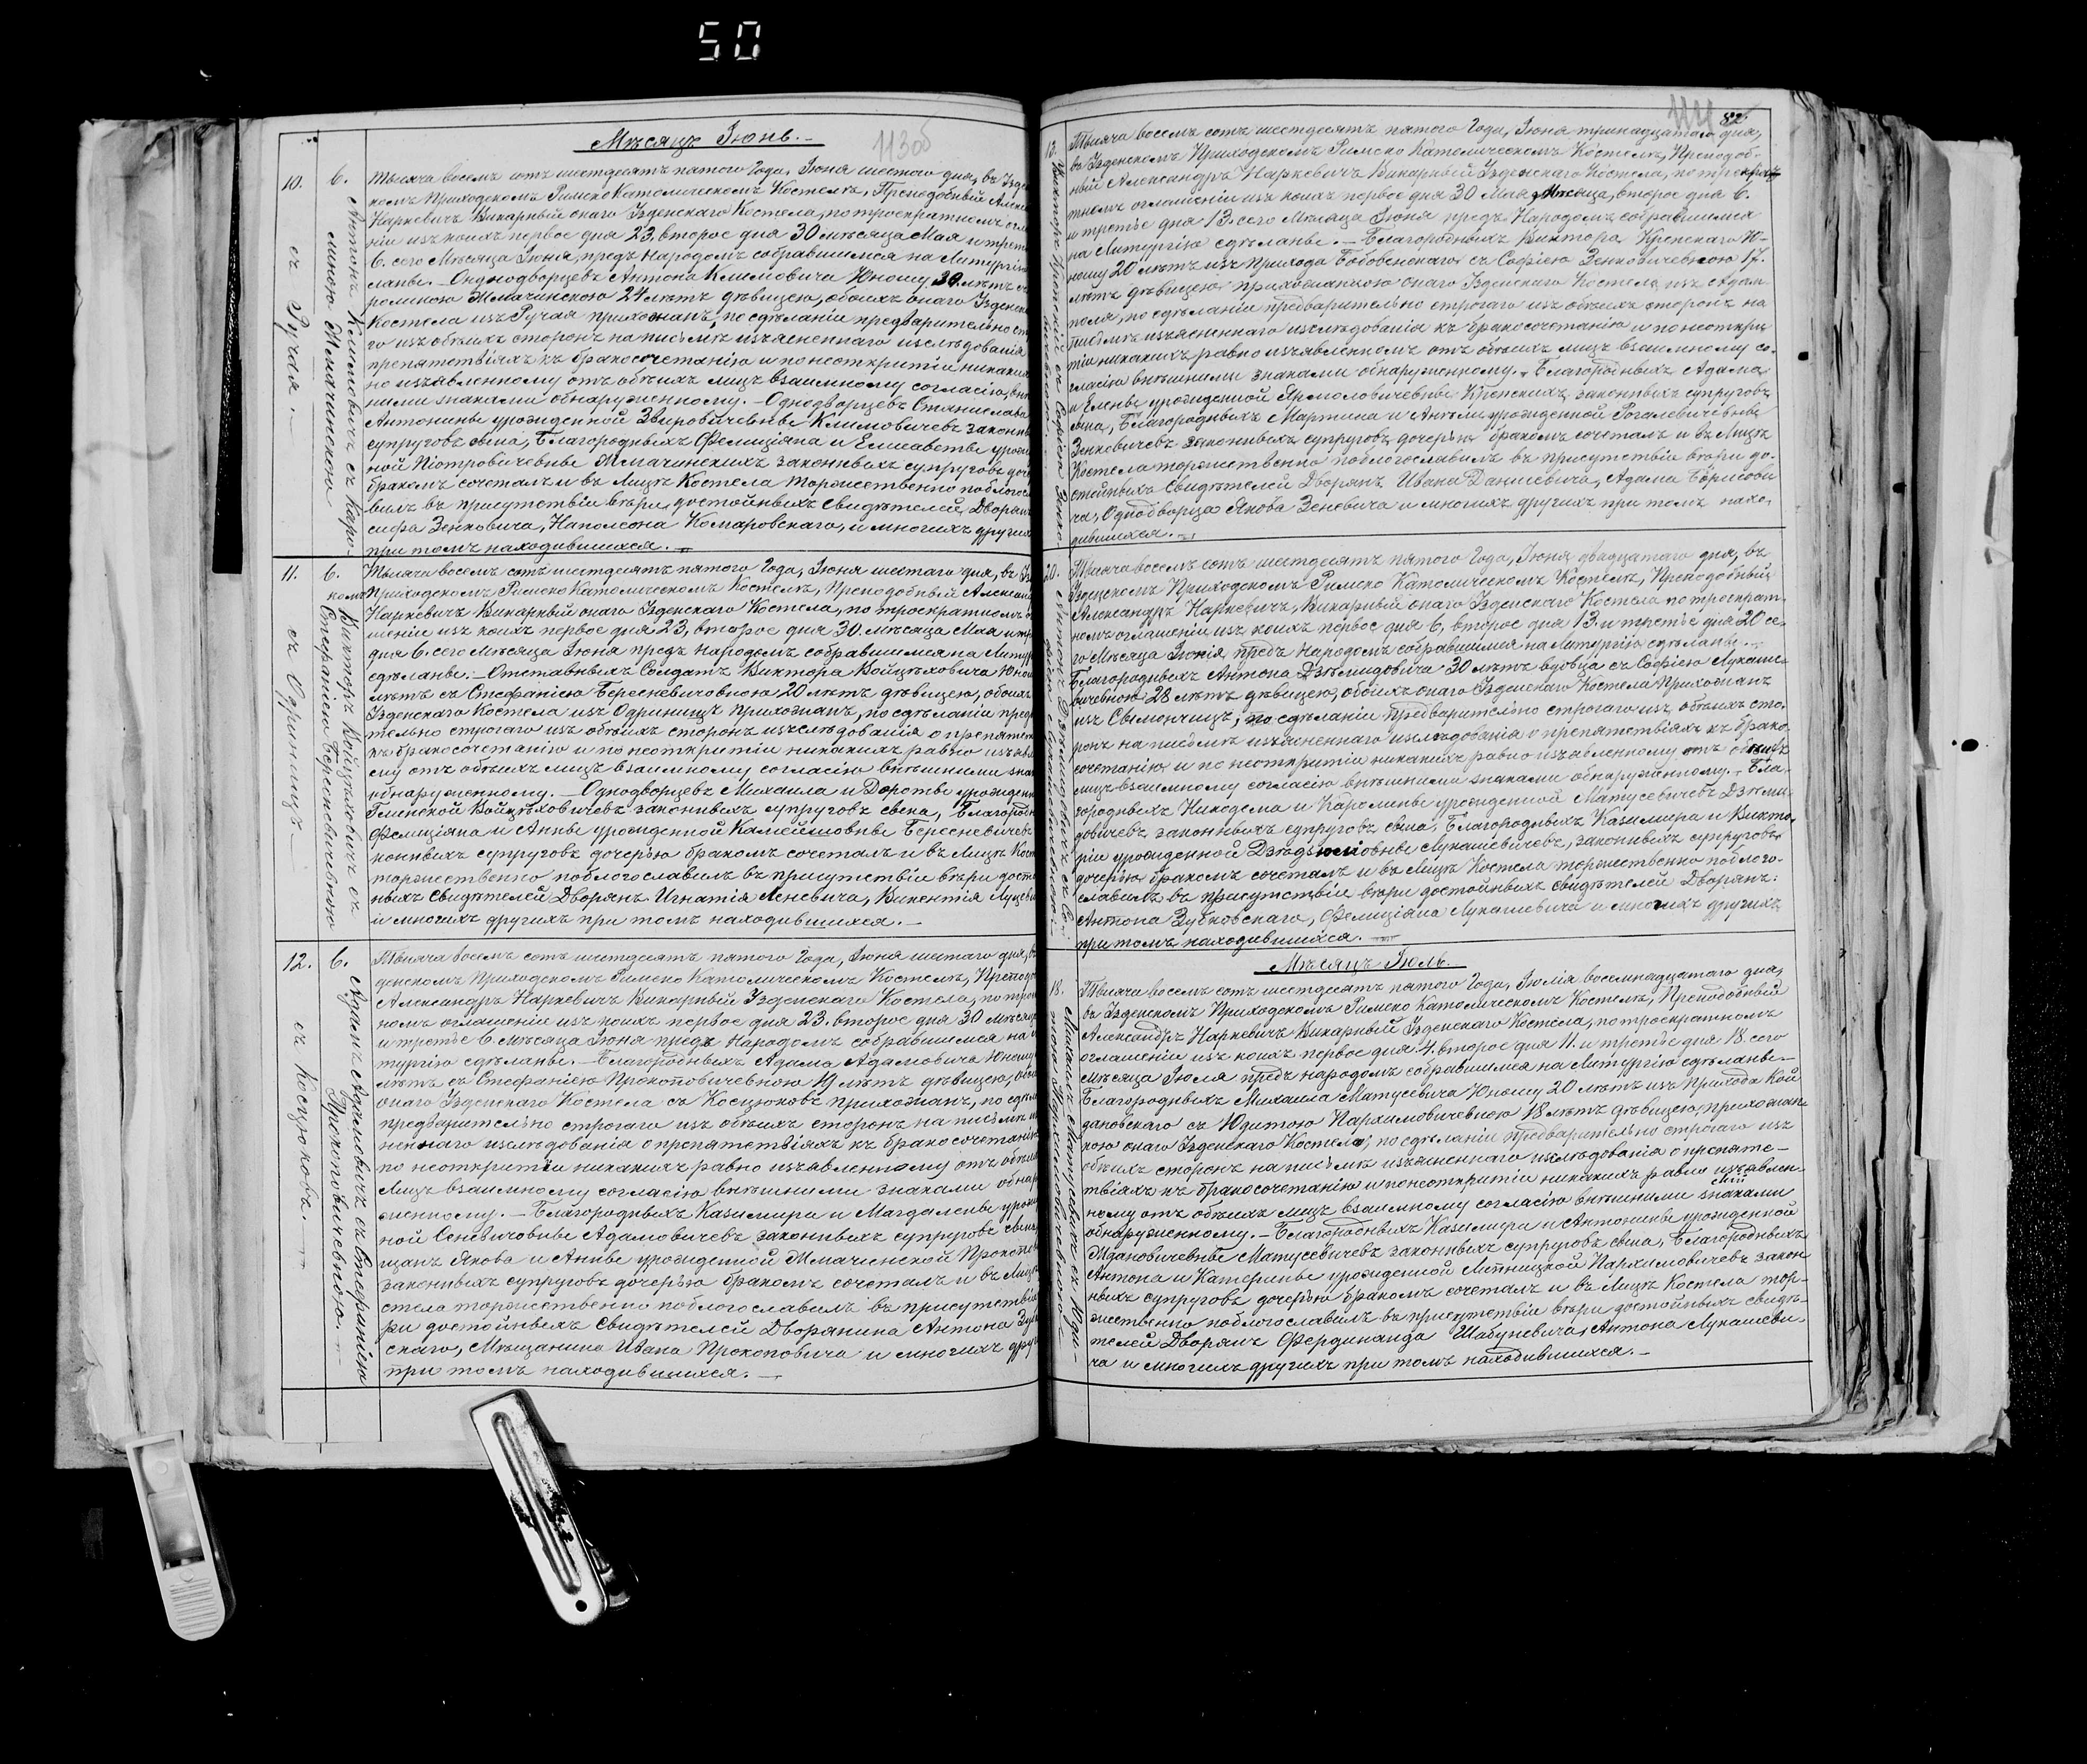 50
Мѣсяцъ Іюнь.
113об
10.
6.
Антонъ Климовичъ съ Каро-
линою Жмачинскою
съ Ручая.
Тысяча восемъ сотъ шестдесятъ пятого Года, Іюня шестого дня, въ Узде
комъ Приходскомъ Римско Католическомъ Костелѣ, Преподобный Алекса
Наркевичъ Викарный онаго Узденскаго Костела, по троекратномъ огла
ніи изъ коихъ первое дня 23. второе дня 30 мѣсяца Мая и трет
6. сего Мѣсяца Іюня, предъ Народомъ собравшимся на Литургію
ланы. — Однодворцевъ Антона Климовича Юношу 30 лѣтъ съ
ролиною Жмачинскою 24 лѣтъ дѣвицею, обоихъ онаго Узденска
Костела изъ Ручая прихожанъ, по сдѣланіи предварительно ст
го изъ обѣихъ сторонъ на письмѣ изъясненнаго изслѣдованія
препятствіяхъ къ бракосочетанію и по неоткрытіи никаких
но изъявленному отъ обѣихъ лицъ взаимному согласію, внѣ
ними знаками обнаруженному. — Однодворцевъ Станислава
Антонины урожденной Звировичевны Климовичевъ законны
супруговъ сына, Благородныхъ Фелиціана и Елисаветы урож
ной Піотровичевны Жмачинскихъ законныхъ супруговъ доч
бракомъ сочеталъ и въ Лицѣ Костела торжественно поблагос
вилъ въ присутствіи вѣры достойныхъ Свидѣтелей, Дворян
сифа Зенковича, Наполеона Комаровскаго, и многихъ другихъ
при томъ находившихся.
11.
6.
Викторъ Войцѣховичъ съ
Стефаніею Бересневичевною
съ Одриницъ
Тысяча восемъ сотъ шестдесятъ пятого Года, Іюня шестаго дня, въ Уз
комъ Приходскомъ Римско Католическомъ Костелѣ, Преподобный Алексан
Наркевичъ Викарный онаго Узденскаго Костела, по троекратномъ о
шеніи изъ коихъ первое дня 23, второе дня 30. мѣсяца Мая и тре
дня 6. сего Мѣсяца Іюня предъ Народомъ собравшимся на Литур
сдѣланы. — Отставныхъ Солдатъ Виктора Войцѣховича Юнош
лѣтъ съ Стефаніею Бересневичовною 20 лѣтъ дѣвицею, обоихъ
Узденскаго Костела изъ Одриницъ прихожанъ, по сдѣланіи пред
тельно строгаго изъ обѣихъ сторонъ изслѣдованія о препятст
къ бракосочетанію и по неоткрытіи никакихъ равно изъявл
ему отъ обѣихъ лицъ взаимному согласію внѣшними знак
обнаруженному. — Однодворцевъ Михаила и Дороты урожденн
Глинской Войцѣховичевъ законныхъ супруговъ сына, Благородн
Фелиціана и Анны урожденной Камейшовны Бересневичевъ
конныхъ супруговъ дочерью бракомъ сочеталъ и въ Лицѣ Кост
торжественно поблагославилъ въ присутствіи вѣры досто
ныхъ Свидѣтелей Дворянъ. Игнатія Леневича, Викентія Луцев
и многихъ другихъ при томъ находившихся. —
12.
6.
Адамъ Адамовичъ съ Стефаніею
Прокоповичевною.
съ Косцюковъ.
Тысяча восемъ сотъ шестдесятъ пятого Года, Іюня шестаго дня, въ
денскомъ Приходскомъ Римско Католическомъ Костелѣ, Преподо
Александръ Наркевичъ Викарный Узденскаго Костела, по трое
номъ оглашеніи изъ коихъ первое дня 23. второе дня 30 мѣсяца
и третье 6. мѣсяца Іюня предъ Народомъ собравшимся на
тургію сдѣланы. — Благородныхъ Адама Адамовича Юношу
лѣтъ съ Стефаніею Прокоповичевною 19 лѣтъ дѣвицею, обо
онаго Узденскаго Костела съ Косцюковъ прихожанъ, по сдѣл
предварительно строгаго изъ обѣихъ сторонъ на письмѣ
неннаго изслѣдованія о препятствіяхъ къ бракосочетанію
по неоткрытіи никакихъ равно изъявленному отъ обѣих
Лицъ взаимному согласію внѣшними знаками обнар
женному. — Благородныхъ Казимира и Магдалены урож
ной Сеневичовны Адамовичевъ законныхъ супруговъ сына
щанъ Якова и Анны урожденной Жмачинской Прокопов
законныхъ супруговъ дочерью бракомъ сочеталъ и въ Лицѣ
стела торжественно поблагославилъ въ присутствіи
ры достойныхъ Свидѣтелей Дворянина Антона Зуб
скаго, Мѣщанина Ивана Прокоповича и многихъ друг
при томъ находившихся. —
82
13.
Викторъ Крепскій съ Софіею Зенко
вичевною.
Тысяча восемъ сотъ шестдесятъ пятого Года, Іюня тринадцатаго дня,
въ Узденскомъ Приходскомъ Римско Католическомъ Костелѣ, Преподоб-
ный Александръ Наркевичъ Викарный Узденскаго Костела, по троекра
тномъ оглашеніи изъ коихъ первое дня 30 Мая Мѣсяца, второе дня 6.
и третье дня 13. сего Мѣсяца Іюня предъ Народомъ собравшимся
на Литургію сдѣланы. — Благородныхъ Виктора Крепскаго Ю-
ношу 20 лѣтъ изъ Прихода Бобовенскаго съ Софіею Зенковичевною 17.
лѣтъ дѣвицею прихожанкою онаго Узденскаго Костела изъ Адам
поля, по сдѣланіи предварительно строгаго изъ обѣихъ сторонъ на
письмѣ изъясненнаго изслѣдованія къ бракосочетанію и по неоткры
тіи никакихъ равно изъявленномъ отъ обѣихъ лицъ взаимному со-
гласію внѣшними знаками обнаруженному. — Благородныхъ Адама
и Елены урожденной Ярмоловичевны Крепскихъ, законныхъ супруговъ
сына, Благородныхъ Мартина и Анели урожденной Рогалевичевны
Зенковичевъ законныхъ супруговъ дочерью бракомъ сочеталъ и въ Лицѣ
Костела торжественно поблагославилъ въ присутствіи вѣры до-
стойныхъ Свидѣтелей Дворянъ Ивана Даншевича, Адама Борисови
ча, Однодворца Якова Зеневича и многихъ другихъ при томъ нахо-
дившихся. —
20.
Тысяча восемъ сотъ шестдесятъ пятого Года, Іюня двадцатаго дня, въ
Узденскомъ Приходскомъ Римско Католическомъ Костелѣ, Преподобный
Александръ Наркевичъ, Викарный онаго Узденскаго Костела по троекрат
номъ оглашеніи изъ коихъ первое дня 6, второе дня 13. и третье дня 20 се-
го Мѣсяца Іюня предъ Народомъ собравшимся на Литургію сдѣланы. —
Благородныхъ Антона Дземидовича 30 лѣтъ вдовца съ Софіею Лукаше
вичевною 28 лѣтъ дѣвицею, обоихъ онаго Узденскаго Костела Прихожанъ
изъ Сымончицъ, по сдѣланіи предварительно строгаго изъ обѣихъ сто-
ронъ на письмѣ изъясненнаго изслѣдованія о препятствіяхъ къ брако-
сочетанію и по неоткрытіи никакихъ равно изъявленному отъ обѣихъ
лицъ взаимному согласію внѣшними знаками обнаруженному. — Бла-
городныхъ Никодема и Каролины урожденной Матусевичевъ Дземи-
довичевъ законныхъ супруговъ сына, Благородныхъ Казимира и Викто-
ріи урожденной Лукашевичевъ, законныхъ супруговъ
дочерью бракомъ сочеталъ и въ Лицѣ Костела торжественно поблаго-
славилъ въ присутствіи вѣры достойныхъ свидѣтелей Дворянъ:
Антона Зубковскаго, Фелиціана Лукашевича и многихъ другихъ
при томъ находившихся.
Мѣсяцъ Іюль.
18.
Михаилъ Матусевичъ съ Юди-
тою Пархимовичевною
Тысяча восемъ сотъ шестдесятъ пятого Года, Іюлія восемнадцатаго дня,
въ Узденскомъ Приходскомъ Римско Католическомъ Костелѣ, Преподобный
Александръ Наркевичъ Викарный Узденскаго Костела, по троекратномъ
оглашеніи изъ коихъ первое дня 4. второе дня 11. и третье дня 18. сего
Мѣсяца Іюля предъ народомъ собравшимся на Литургію сдѣланы —
Благородныхъ Михаила Матусевича Юношу 20 лѣтъ изъ Прихода Кой
дановского съ Юдитою Пархимовичевною 18 лѣтъ дѣвицею, прихожан
кою онаго Узденскаго Костела, по сдѣланіи предварительно строгаго изъ
обѣихъ сторонъ на письмѣ изъясненнаго изслѣдованія о препятс-
твіяхъ къ бракосочетанію и по неоткрытіи никакихъ равно изъявлен-
ному отъ обѣихъ лицъ взаимному согласію внѣшними знаками
обнаруженному. — Благородныхъ Казимира и Антонины урожденной
Ждановичевны Матусевичевъ законныхъ супруговъ сына, Благородныхъ
Антона и Катерины урожденной Лѣтницкой Пархимовичевъ закон
ныхъ супруговъ дочерью бракомъ сочеталъ и въ Лицѣ Костела тор-
жественно поблагославилъ въ присутствіи вѣры достойныхъ свидѣ-
телей Дворянъ Фердинанда Шабуневича, Антона Лукашеви-
ча и многихъ другихъ при томъ находившихся. —